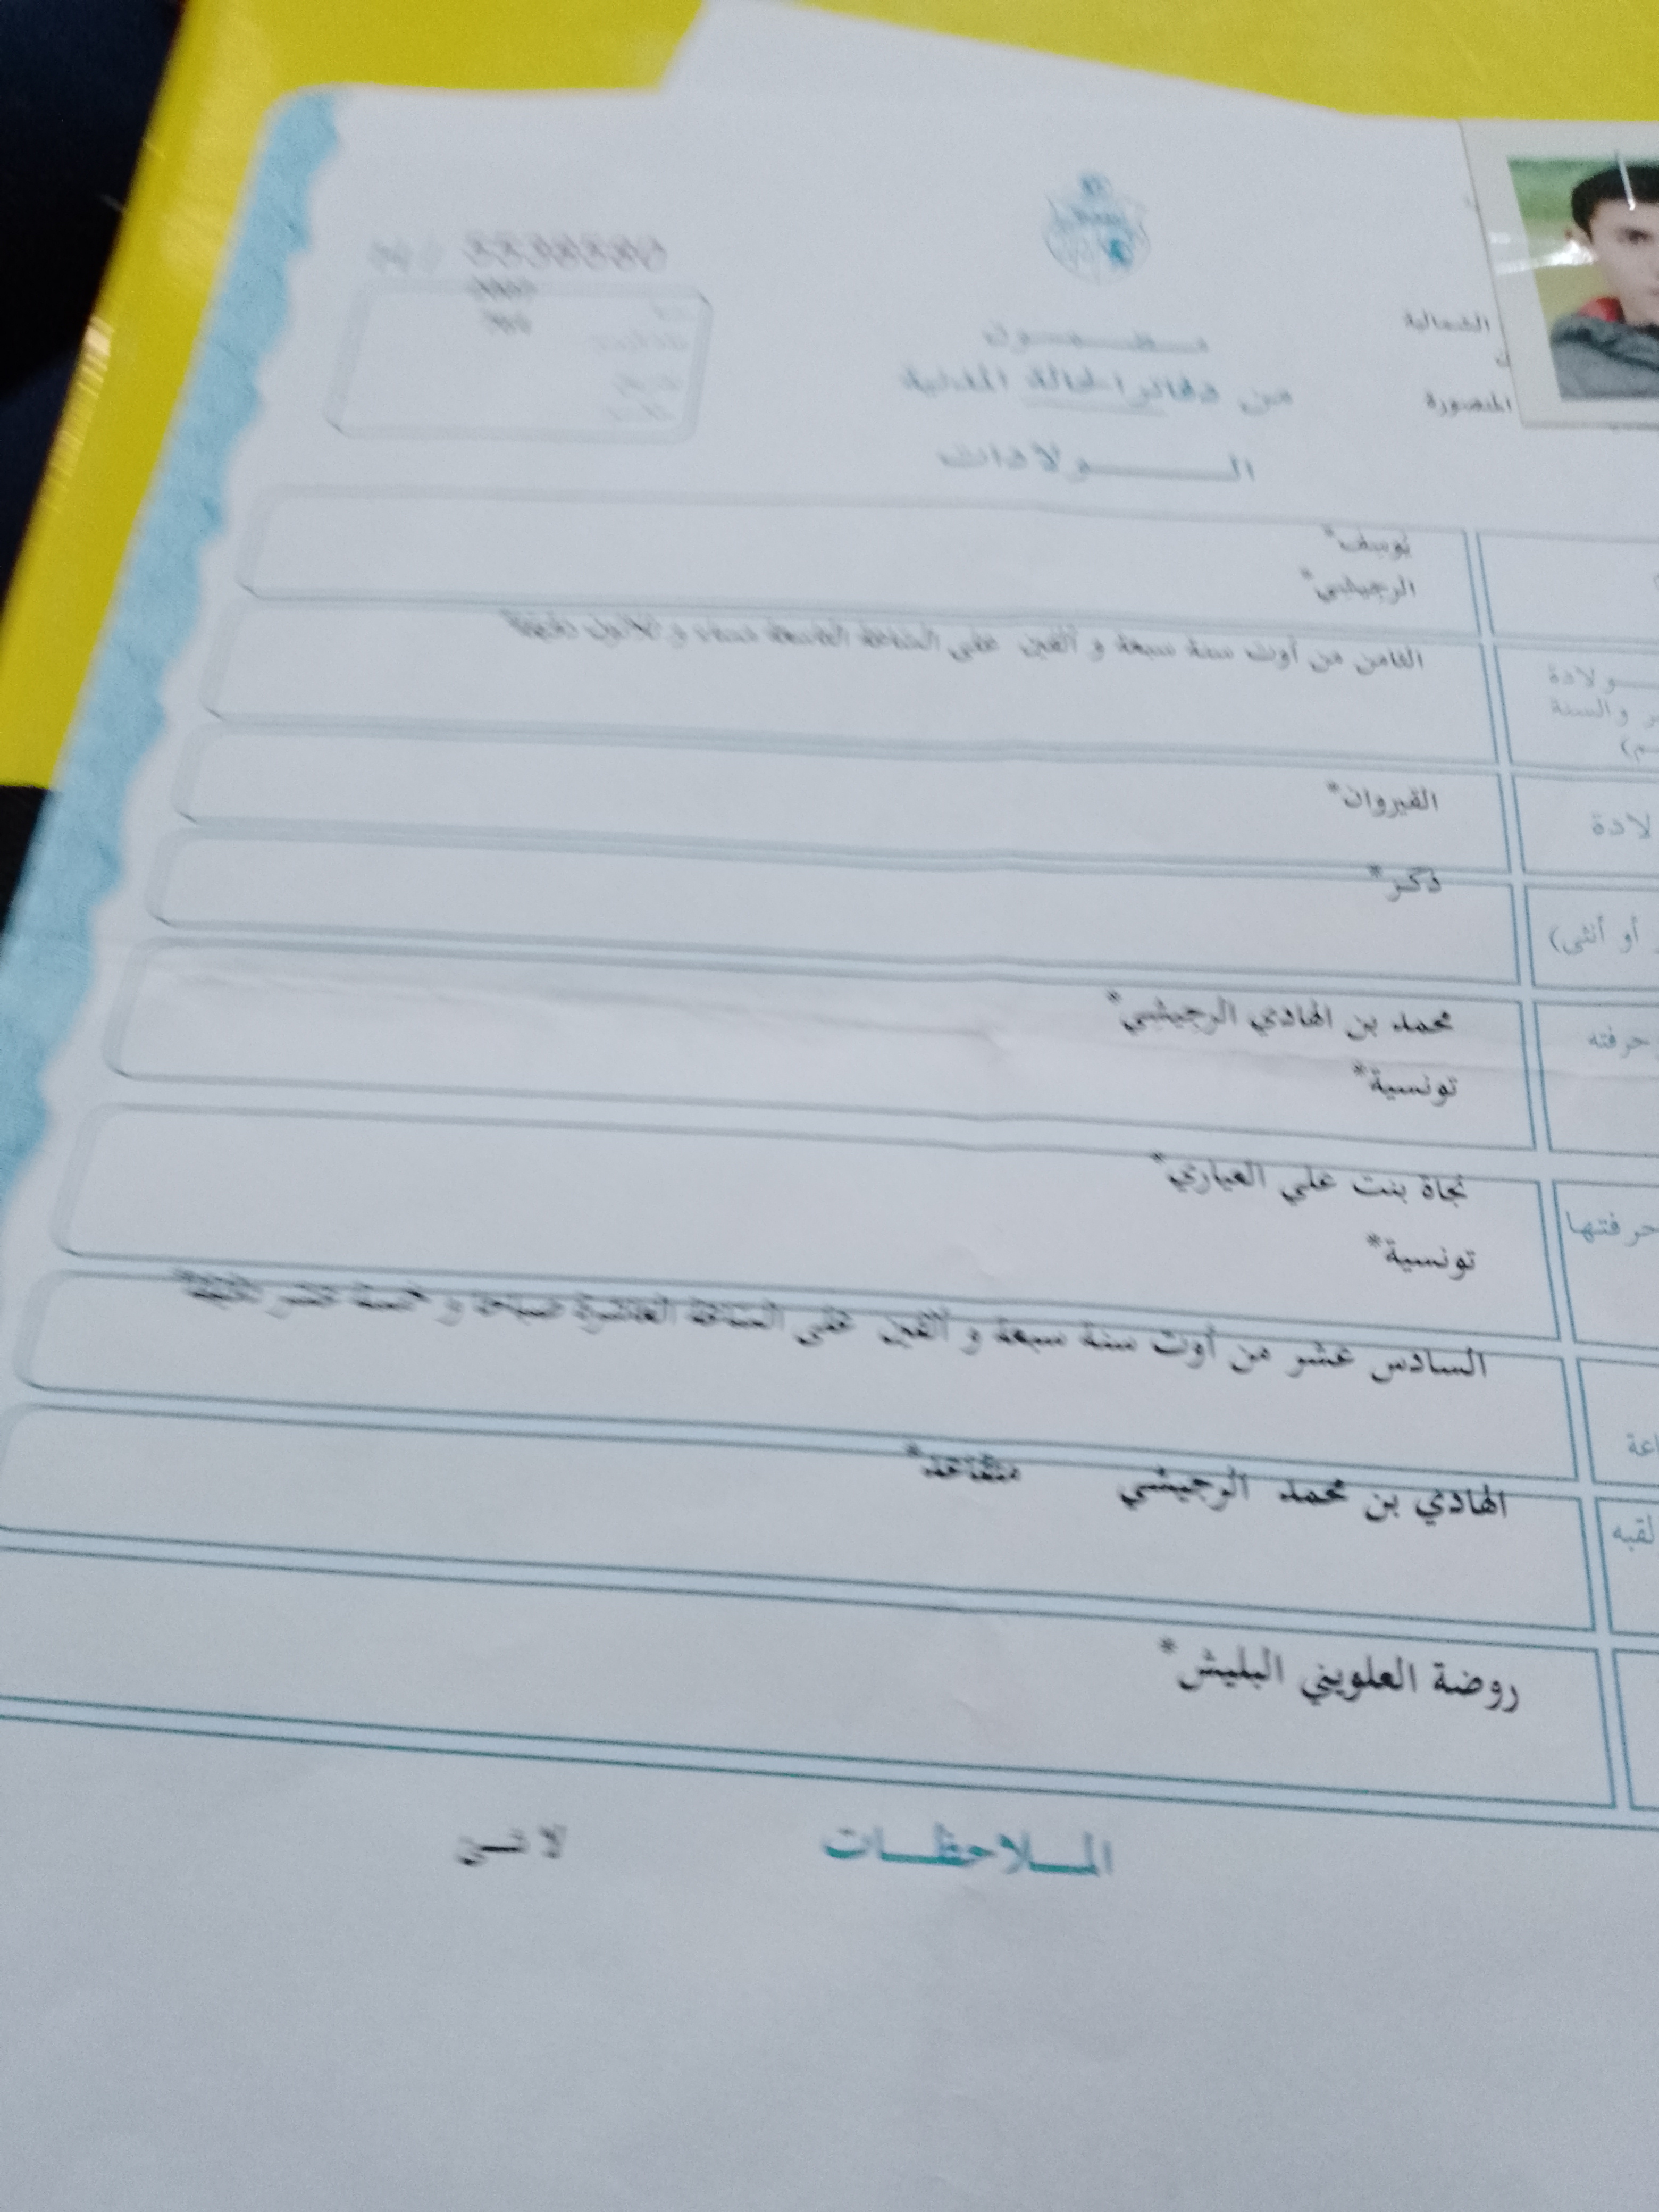 الشمالية
المنصورة
مضمون
من دفاتر الحالة المدنية
الولادات
يوسف*
الرجيشي*
ولادة
الثامن من أوت سنة سبعة و ألفين على الساعة التاسعة مساء و ثلاثون دقيقة*
والسنة
لادة
القيروان*
أو أنثى)
ذكر*
حرفته
محمد بن الهادي الرجيشي*
تونسية*
حرفتها
نجاة بنت علي العياري*
تونسية*
السادس عشر من أوت سنة سبعة و ألفين على الساعة العاشرة صباحا و خمسة عشر دقيقة*
لقبه
الهادي بن محمد الرجيشي متقاعد*
روضة العلويني البليش*
الملاحظات لا شيء